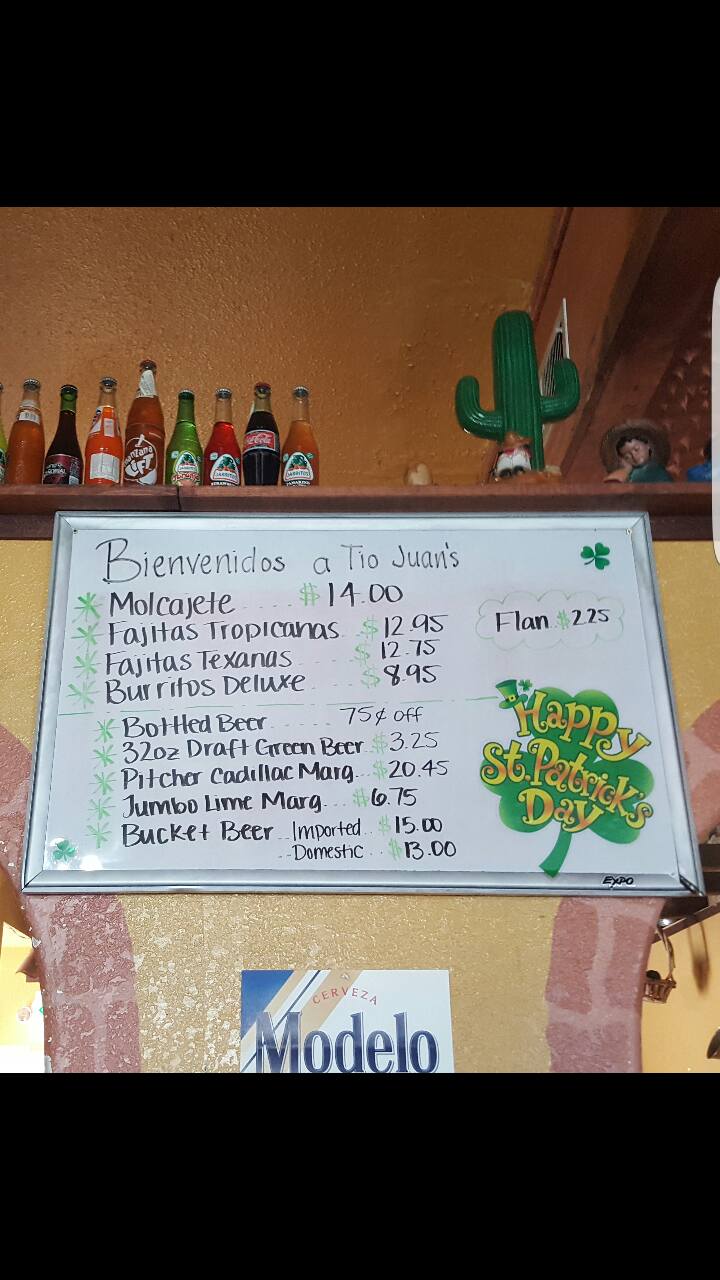 Bienvenidos a Tio Juan's
Molcajete ..... $14.00
Fajitas Tropicanas .. $12.95
Fajitas Texanas ...... $12.75
Burritos Deluxe ..... $8.95
Flan .. $2.25
Bottled Beer ....... 75¢ off
32oz Draft Green Beer .. $3.25
Pitcher Cadillac Marg... $20.45
Jumbo Lime Marg. ... $6.75
Bucket Beer .. Imported .. $15.00
-- Domestic ... $13.00
Happy
St. Patrick's
Day
EXPO
CERVEZA
Modelo
Coca-Cola
LIFT
JARRITOS